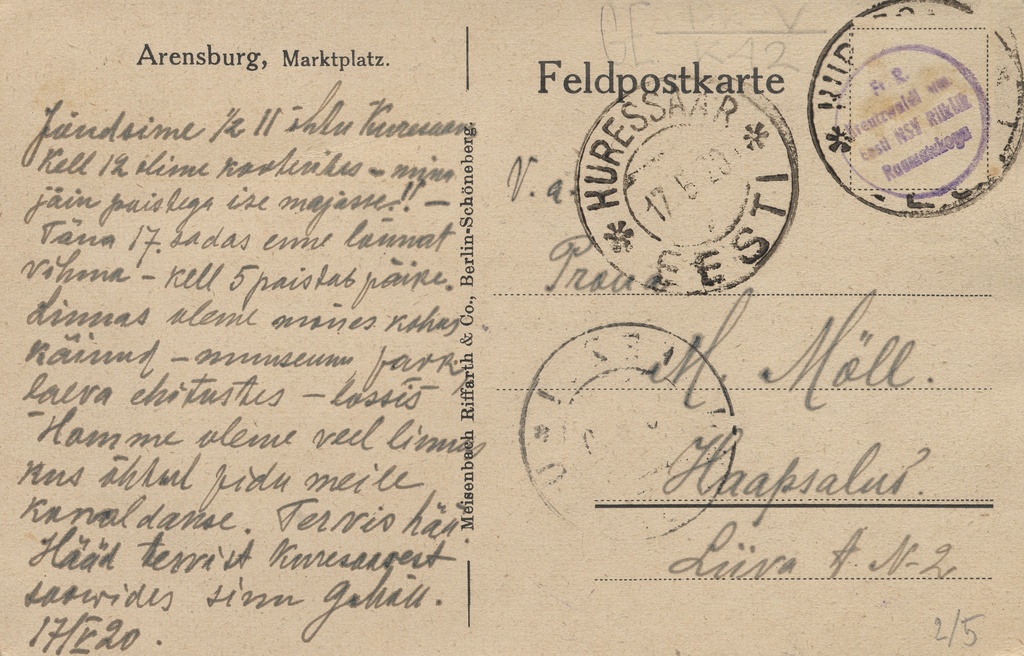 Arensburg, Marktplatz.
Jõudsime 1/2 11 õhtu Kuresaare
Kell 12 olime korterites – mina
jäin paistega ise majasse!! –
Täna 17. sadas enne lõunat
vihma – kell 5 paistab päike.
Linnas oleme mõnes kohas
käinud – museum park
laeva ehitustes – lossis
Homme oleme veel linnas
kus õhtul pidu meile
korraldanse. Tervis hää.
Hääd tervist Kuresaarest
soowides sinu
17/V 20.
Meisenbach Riffarth & Co., Berlin-Schöneberg.
Feldpostkarte
KURESSAAR
17 5 20
EESTI
Eesti NSV Riiklik
Raamatukogu
V. a.
Proua
M. Möll.
Haapsalus.
Liiva t. N-2
2/5